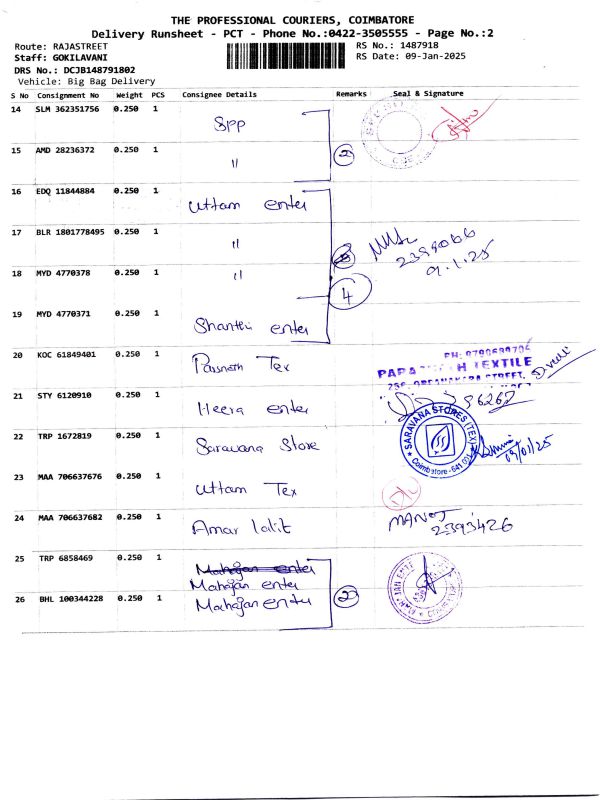 THE PROFESSIONAL COURIERS, COIMBATORE
Delivery Runsheet - PCT - Phone No.:0422-3505555 - Page No.:2
Route: RAJASTREET
RS No.: 1487918
Staff: GOKILAVANI
RS Date: 09-Jan-2025
DRS No.: DCJB148791802
Vehicle: Big Bag Delivery
S No Consignment No Weight PCS Consignee Details Remarks Seal & Signature
14 SLM 362351756 0.250 1 SPP
15 AMD 28236372 0.250 1 " 2
16 EDQ 11844884 0.250 1 Uttam enter
17 BLR 1801778495 0.250 1 "
2399066
9.1.25
18 MYD 4770378 0.250 1 "
4
19 MYD 4770371 0.250 1 Shanthi enter
20 KOC 61849401 0.250 1 Parsnath Tex
PH: 9790699704
TEXTILE
STREET,
21 STY 6120910 0.250 1 Heera enter
22 TRP 1672819 0.250 1 Saravana Store
SARAVANA STORES (TEX)
Coimbatore - 641 001
09/01/25
23 MAA 706637676 0.250 1 Uttam Tex
24 MAA 706637682 0.250 1 Amar lalit MANOJ
2393426
25 TRP 6858469 0.250 1 Mahajan enter
Mahajan enter
26 BHL 100344228 0.250 1 Mahajan enter 2